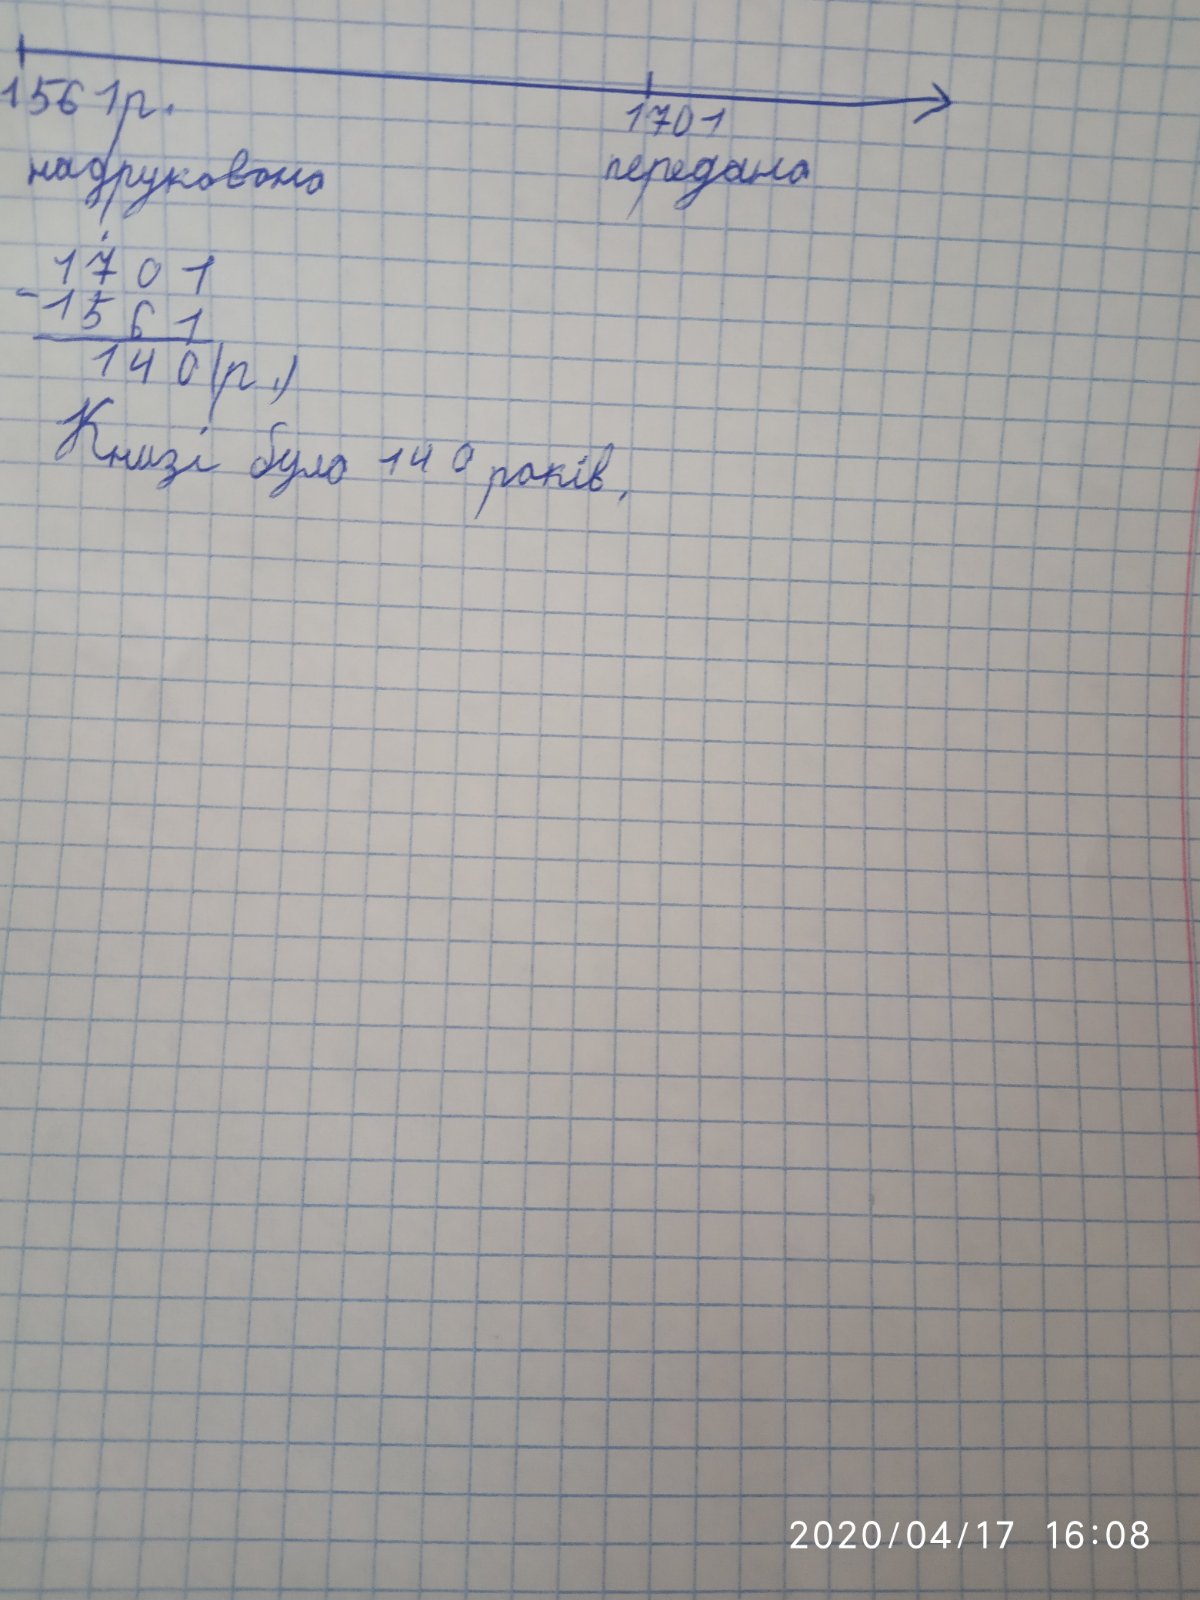 1561р.
1701
надрукована
передана
1701
- 1561
140(р.)
Книзі було 140 років.
2020/04/17 16:08